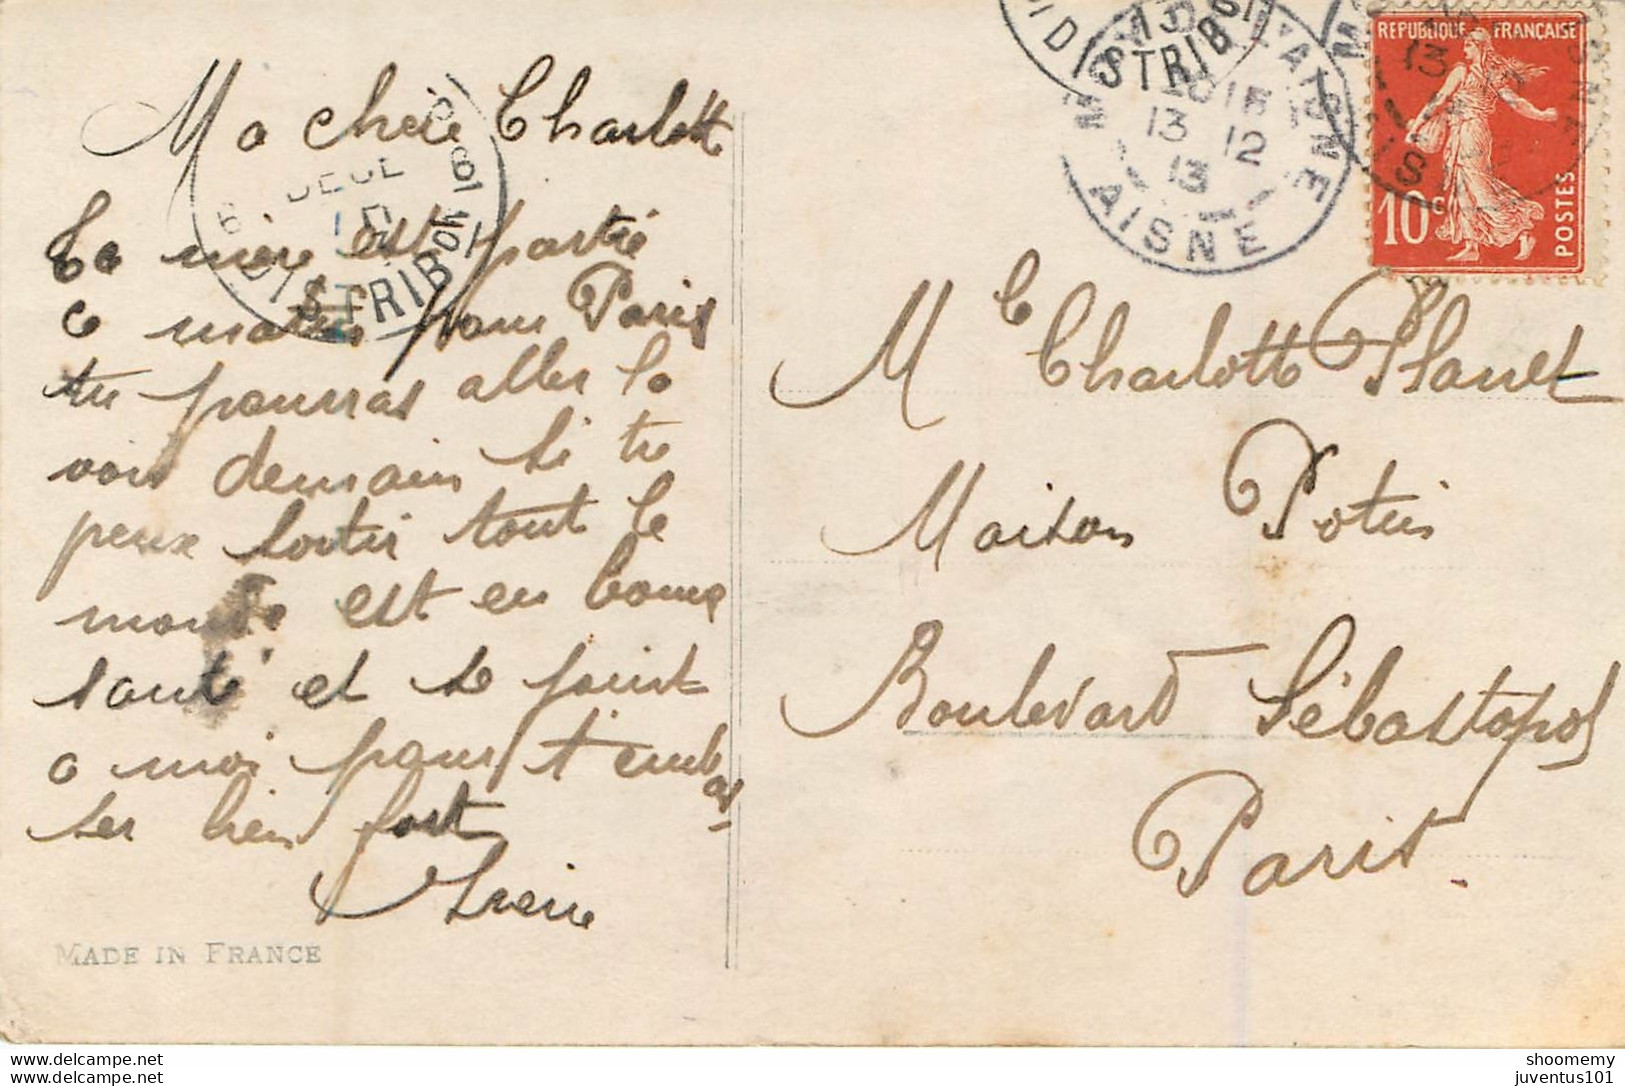 Ma chère Charlotte
Ta mère est partie
ce matin pour Paris
tu pourras aller la
voir demain si tu
peux sortir tout le
monde est en bonne
santé et se joint
a moi pour t'embras-
ser bien fort
MADE IN FRANCE
REPUBLIQUE FRANÇAISE
10c
POSTES
13 12
13
AISNE
DISTRIBON
Mlle Charlotte Planet
Maison Potin
Boulevard Sébastopol
Paris.
delcampe.net
juventus101
shoomemy
juventus101